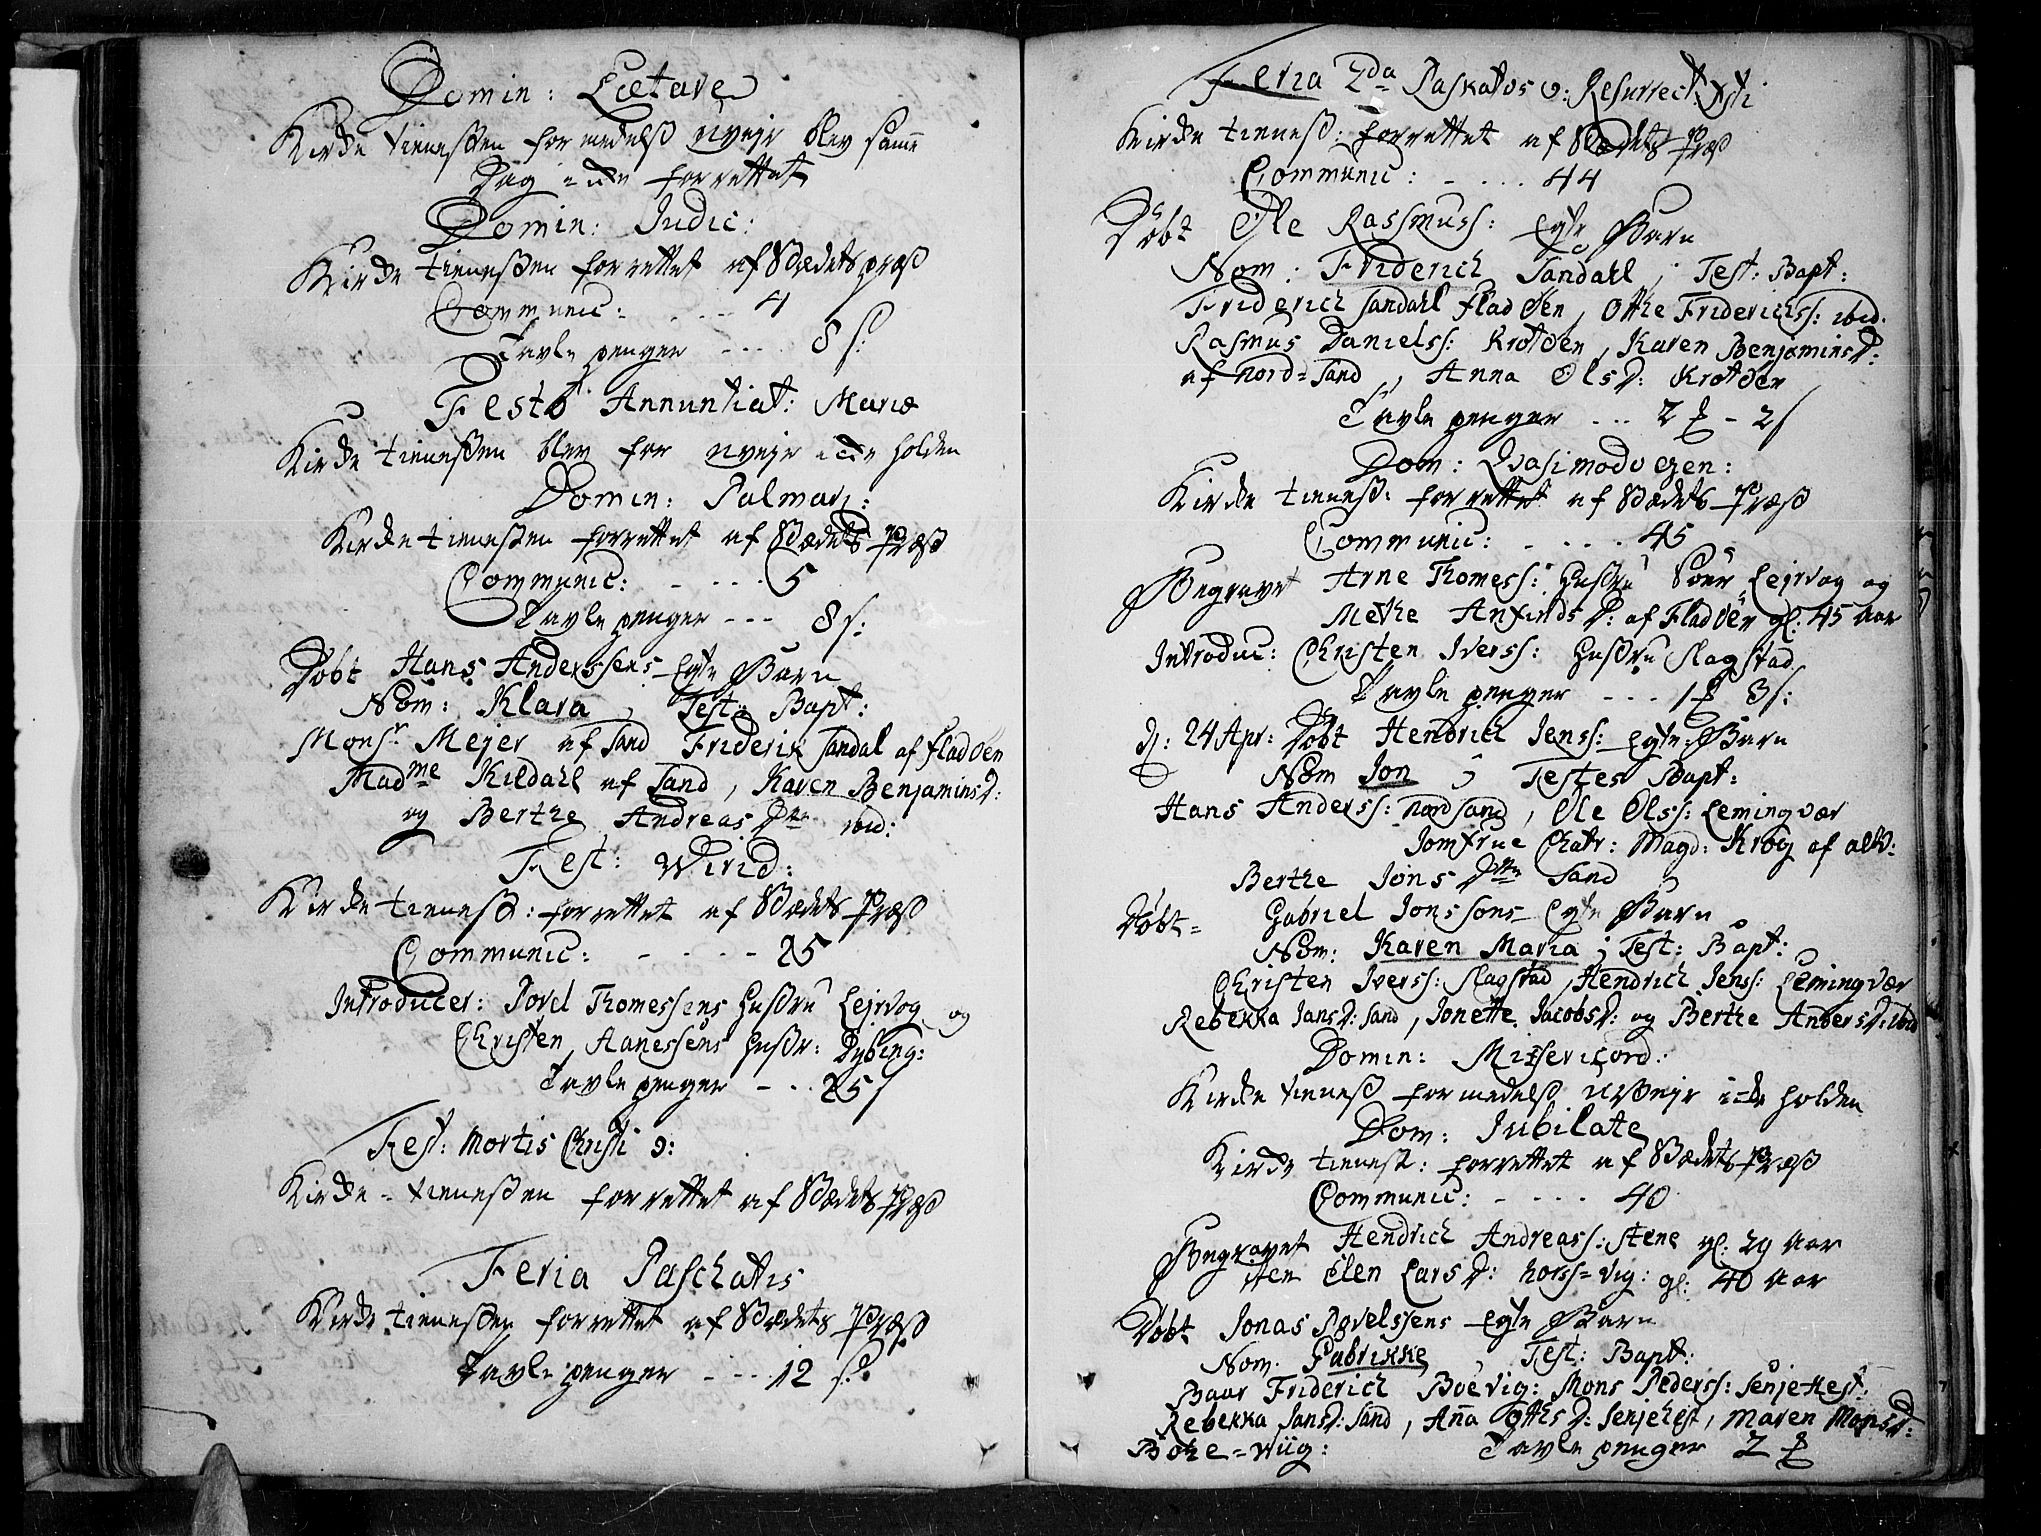 Domin: Lætare
Kirke tienesten formedelst uvejr blev samme
Dag icke forrettet
Domin: Judic:
Kirke tienesten forrettet af Stædets præst
Communic: - - - - 4
Tavle penger - - - 8 s:
Festo Annuntiat: Mariæ
Kirke tienesten blev for uvejr icke holden
Domin: Palmar:
Kirke tienesten forrettet af Stædets Præst
Communic: - - - - 5
Tavle penger - - - 8 s:
Døbt Hans Anderssens Egte Barn
Nom: Klara, Test: Bapt:
Monsr Mejer af Sand Friderik Sandal af Fladøen
Madme Kildahl af Sand, Karen Benjaminsd:
og Berthe Andreas Dtr ibid:
Fest: Wirid:
Kirke tienest: forrettet af Stædets Præst
Communic: - - - - 25
Introducer: Povel Thomessens Hustru Lejrvog og
Christen Aanessens Hustr: Dybing:
Tavle penger - - - 25 s
Fest: Mortis Christi
Kirke-tienesten forrettet af Stædets Præst
Feria Paschatis
Kirke tienesten forrettet af Stædets Præst
Tavle penger - - - 12 s:
Feria 2da Paskatos Resurrect: Xsti
Kirke tienest: forrettet af Stædets Præst
Communic: - - - - 44
Døbt Ole Rasmuss: Egte Barn
Nom: Friderich Sandahl, Test: Bapt:
Friderich Sandahl Fladøen, Othe Friderichss: ibid.
Rasmus Danielss: Krotøen, Karen Benjaminsd:
af Nord-Sand, Anna Olsd: Krotøen
Tavle penger - - - 2 - 2 s
Dom: Qvasimodogen:
Kirke tienest: forrettet af Stædets Præst
Communic: - - - - 45
Begravet Arne Thomess: Hustru Lejrvog og
Methe Anfindsd: af Fladøen gl: 45 Aar
Introduc: Christen Iverss: Hustru Slagstad
Tavle penger - - - 1 8 s:
d: 24 Apr: Døbt Hendrich Jenss: Egte Barn
Nom Jon, Testes Bapt:
Hans Anderss: Nordsand, Ole Olss: Lemingvær
Jomfrue Chatr: Magd: Krog af alv:
Berthe Jons Dtr Sand
Døbt- Gabriel Jonssons Egte Barn
Nom: Karen Maria; Test: Bapt:
Christen Iverss: Slagstad, Hendrich Jenss: Lemingvær
Rebekka Jansd: Sand, Jonette Jacobsd: og Berthe Andersd: ibid
Domin: Missericord:
Kirke tienest formedelst uvejr icke holden
Dom: Jubilate
Kirke tienest: forrettet af Stædets Præst
Communic: - - - - 40
Begravet Hendrich Andreass: Stene gl: 29 Aar
Item Elen Larsd: Horss-vig: gl: 40 Aar
Døbt Jonas Povelssens Egte Barn
Nom: Pabrikke, Test: Bapt:
Baar Friderich Boevig: Mons Pederss: Senjehest:
Rebekka Jansd: Sand, Aña Othsd: Senjehest, Maren Monsd:
Bohe-wiig: Tavle penger 2